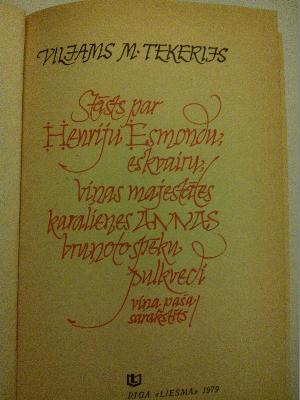 VILJAMS M. TEKERIJS
Stāsts par
Henriju Esmondu,
eskvairu,
viņas majestātes
karalienes ANNAS
bruņoto spēku
pulkvedi
viņa paša
sarakstīts
RĪGA «LIESMA» 1979